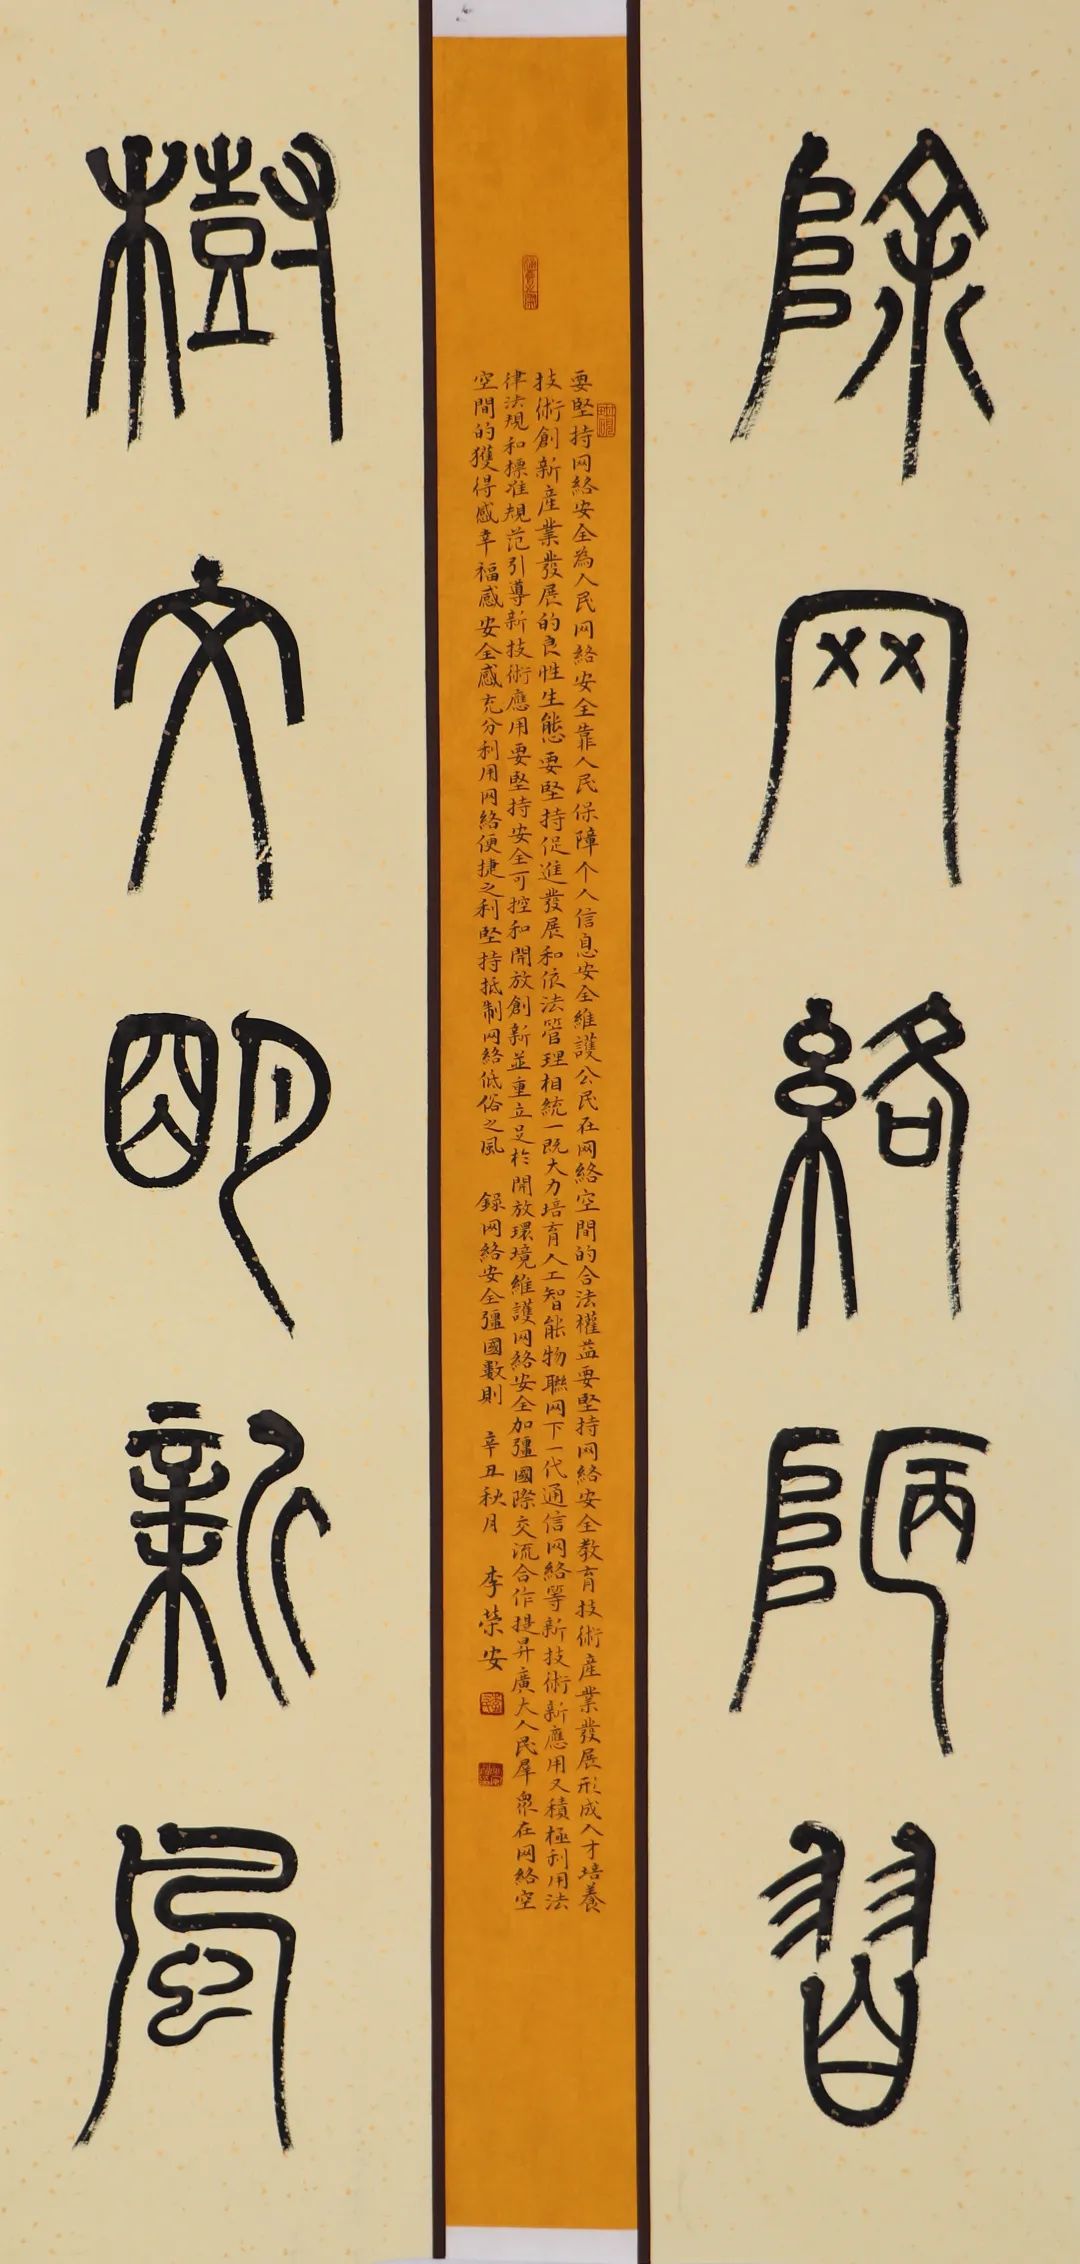 除网絡陋習
要堅持网絡安全為人民网絡安全靠人民保障个人信息安全維護公民在网絡空間的合法權益要堅持网絡安全教育技術產業發展形成人才培養
技術創新產業發展的良性生態要堅持促進發展和依法管理相統一既大力培育人工智能物聯网下一代通信网絡等新技術新應用又積極利用法
律法規和標准規范引導新技術應用要堅持安全可控和開放創新並重立足於開放環境維護网絡安全加彊國際交流合作提昇廣大人民羣眾在网絡空
空間的獲得感幸福感安全感充分利用网絡便捷之利堅持抵制网絡低俗之風 錄网絡安全彊國數則 辛丑秋月 李荣安
樹文明新風